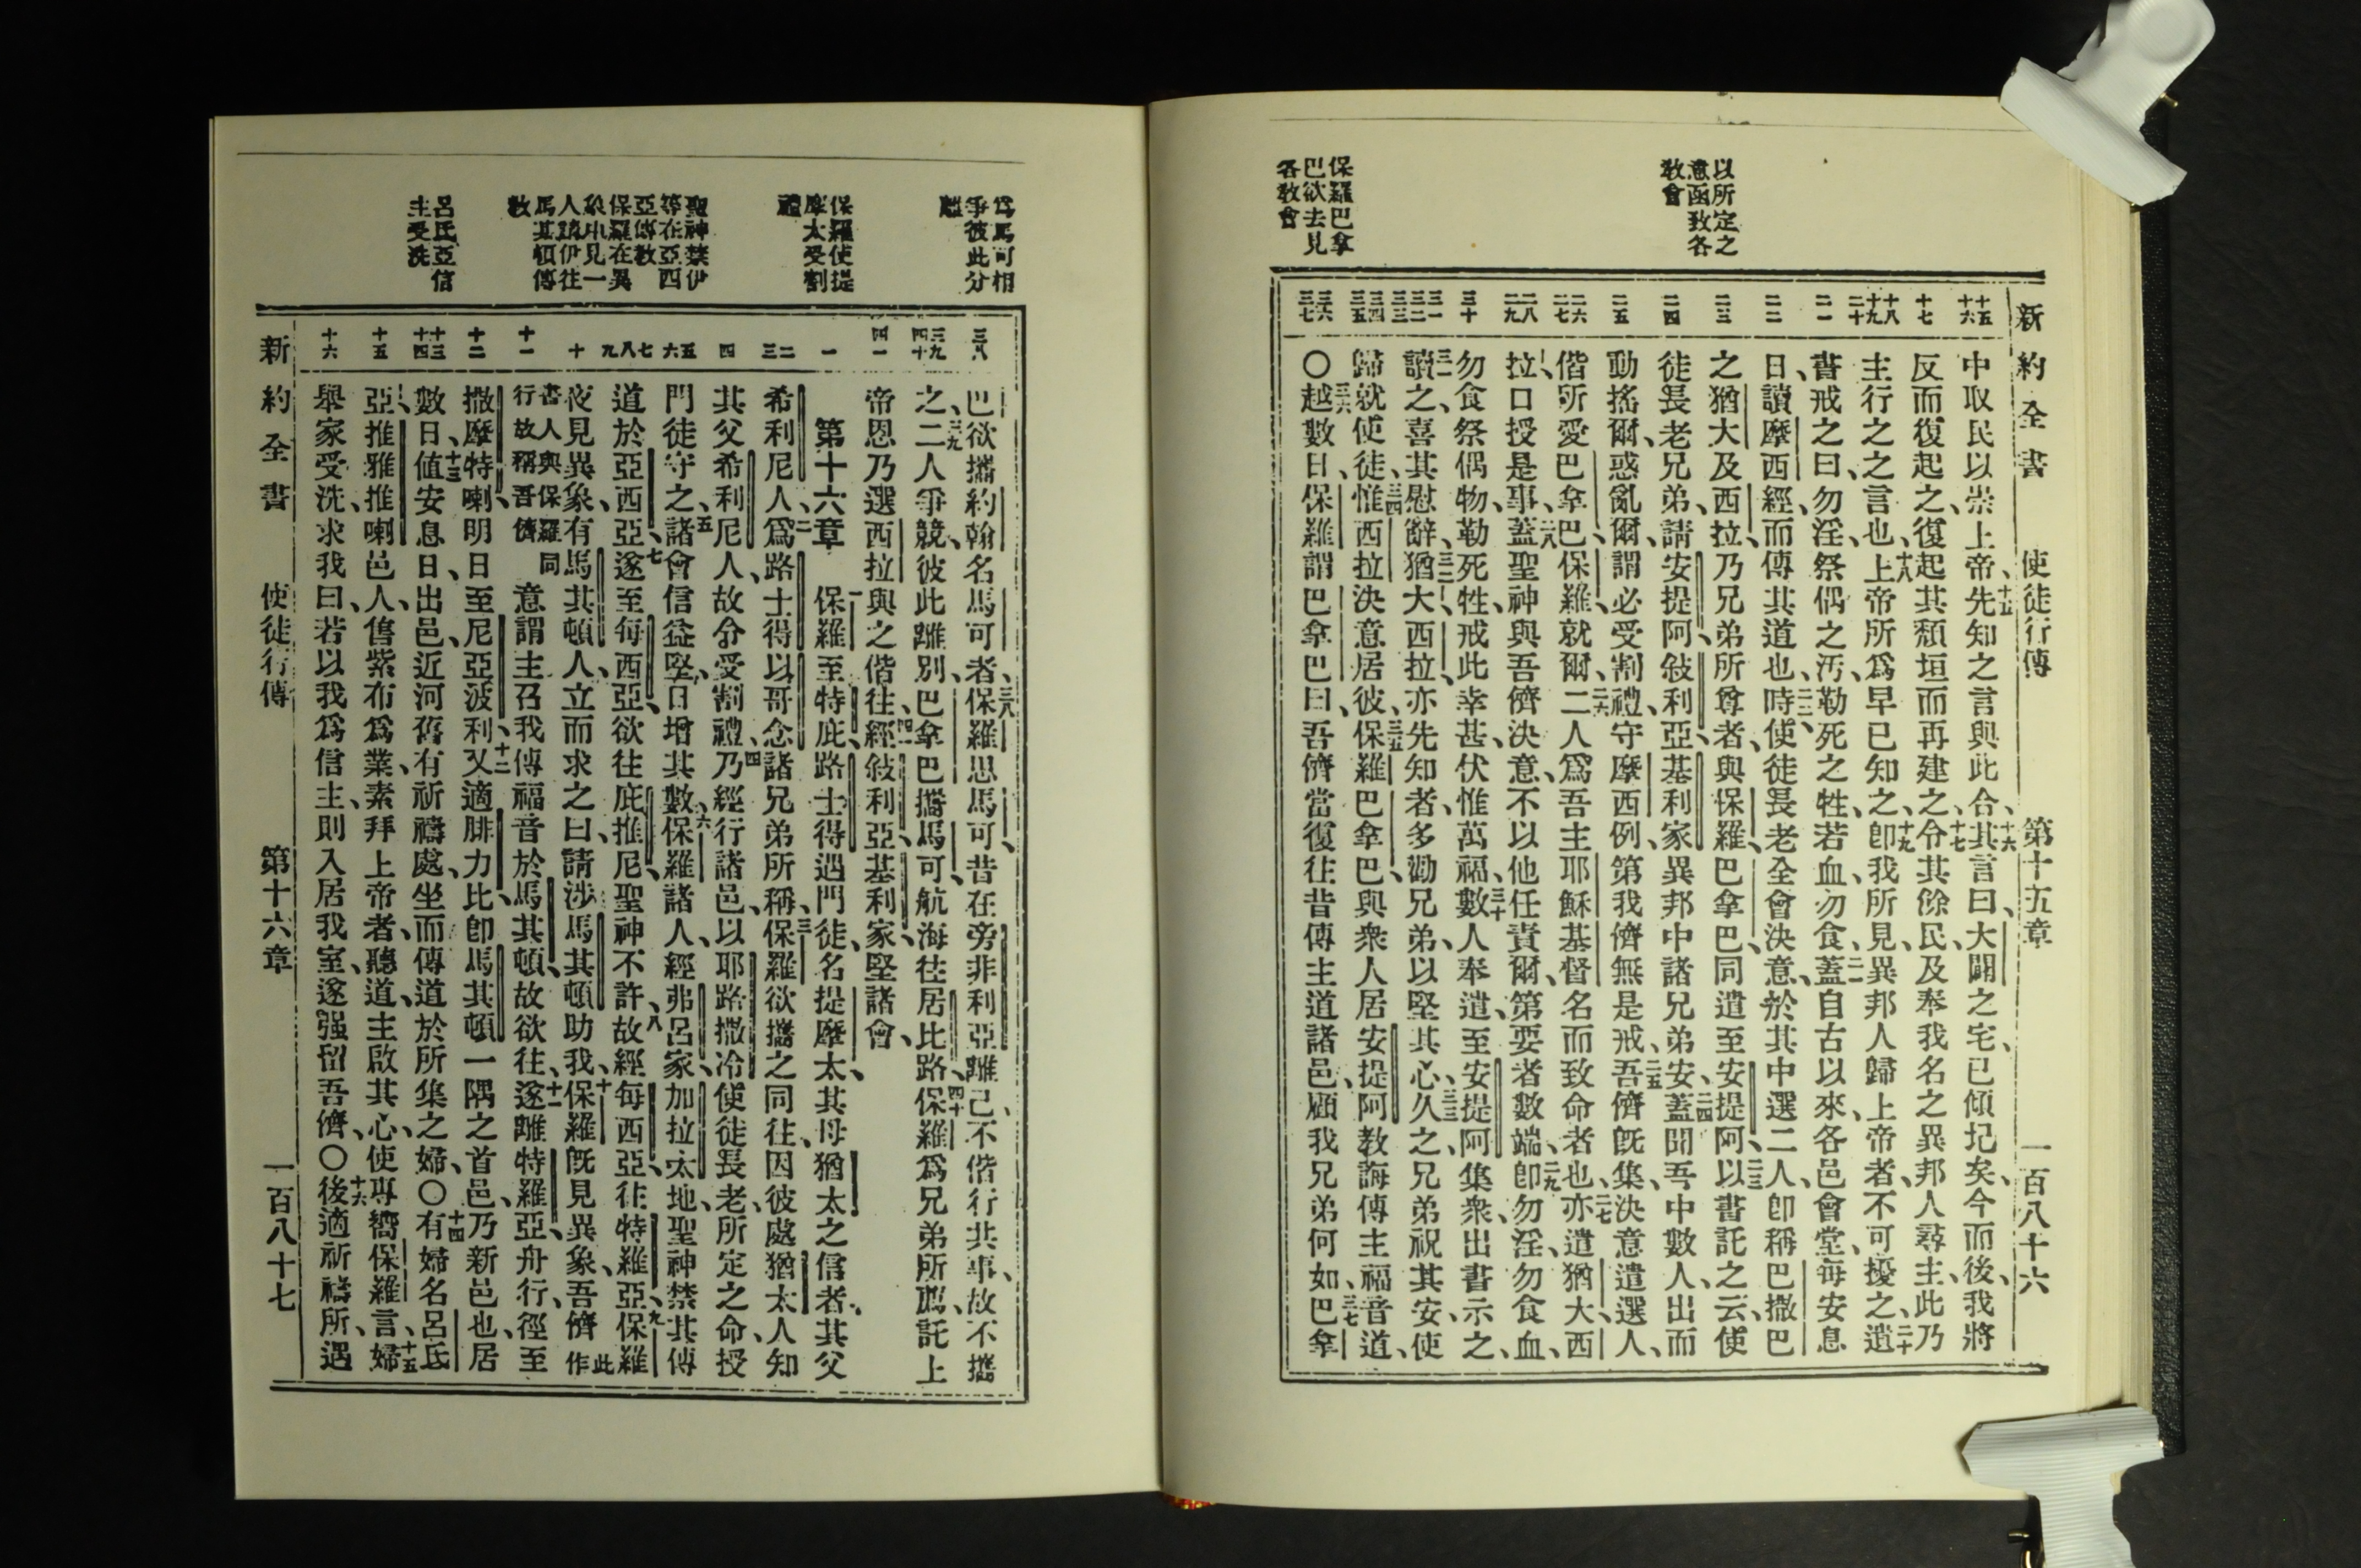 新約全書 使徒行傳 第十五章 一百八十六
以所定之
意函致各
教會
保羅巴拿
巴欲去見
各教會
十五 十六
十七
十八 十九 二十
二一
二二
二三
二四
二五
二六 二七
二八 二九
三十
三一 三二 三三
三四 三五
三六 三七
中取民以崇上帝、十五先知之言與此合、十六其言曰、大闢之宅、已傾圮矣、今而後、我將
反而復起之、復起其頹垣而再建之、十七令其餘民、及奉我名之異邦人尋主、此乃
主行之之言也、十八上帝所爲、早已知之、十九卽我所見、異邦人歸上帝者、不可擾之、二十遺
書戒之曰、勿淫、祭偶之汚、勒死之牲、若血、勿食、二一蓋自古以來、各邑會堂、每安息
日、讀摩西經、而傳其道也、二二時使徒長老全會決意、於其中選二人、卽稱巴撒巴
之猶大及西拉、乃兄弟所尊者、與保羅、巴拿巴、同遣至安提阿、二三以書託之云、使
徒長老兄弟、請安提阿、敍利亞、基利家異邦中諸兄弟安、二四蓋聞吾中數人、出而
動搖爾、惑亂爾、謂必受割禮、守摩西例、第我儕無是戒、二五吾儕旣集、決意遣選人、
偕所愛巴拿巴、保羅、就爾、二六二人爲吾主耶穌基督名而致命者也、二七亦遣猶大、西
拉、口授是事、二八蓋聖神與吾儕決意、不以他任責爾、第要者數端、二九卽勿淫、勿食血、
勿食祭偶物、勒死牲、戒此幸甚、伏惟萬福、三十數人奉遣、至安提阿集衆、出書示之、
三一讀之、喜其慰辭、三二猶大、西拉、亦先知者、多勸兄弟、以堅其心、三三久之、兄弟祝其安、使
歸就使徒、三四惟西拉決意居彼、三五保羅、巴拿巴、與衆人居安提阿、教誨傳主福音道、
〇三六越數日、保羅謂巴拿巴曰、吾儕當復往昔傳主道諸邑、顧我兄弟何如、三七巴拿
爲馬可相
爭彼此分
離
保羅使提
摩太受割
禮
聖神禁伊
等在亞西
亞傳教
保羅在異
象中見一
人請伊往
馬其頓傳
教
呂氐亞信
主受洗
三八
三九 四十
四一
一
二 三
四
五 六
七 八 九
十
十一
十二
十三 十四
十五
十六
巴欲攜約翰名馬可者、三八保羅思馬可、昔在旁非利亞、離己、不偕行共事、故不攜
之、三九二人爭競、彼此離別、巴拿巴攜馬可、航海往居比路、四十保羅爲兄弟所薦、託上
帝恩、乃選西拉與之偕往、四一經敍利亞、基利家、堅諸會、
第十六章 一保羅至特庇、路士得、遇門徒、名提摩太、其母猶太之信者、其父
希利尼人、二爲路士得、以哥念諸兄弟所稱、三保羅欲攜之同往、因彼處猶太人知
其父希利尼人、故令受割禮、四乃經行諸邑、以耶路撒冷使徒長老、所定之命、授
門徒守之、五諸會信益堅、日增其數、六保羅諸人、經弗呂家、加拉太地、聖神禁其傳
道於亞西亞、七遂至每西亞、欲往庇推尼、聖神不許、八故經每西亞、往特羅亞、九保羅
夜見異象、有馬其頓人、立而求之曰、請涉馬其頓助我、十保羅旣見異象、吾儕此作
書人與保羅同行故稱吾儕意謂主召我傳福音於馬其頓、故欲往、十一遂離特羅亞、舟行、徑至
撒摩特喇、明日至尼亞波利、十二又適腓力比、卽馬其頓一隅之首邑、乃新邑也、居
數日、十三値安息日、出邑、近河舊有祈禱處、坐而傳道於所集之婦、〇十四有婦名呂氐
亞、推雅推喇邑人、售紫布爲業、素拜上帝者、聽道、主啟其心、使專嚮保羅言、十五婦
舉家受洗、求我曰、若以我爲信主、則入居我室、遂强留吾儕、〇十六後適祈禱所、遇
新約全書 使徒行傳 第十六章 一百八十七